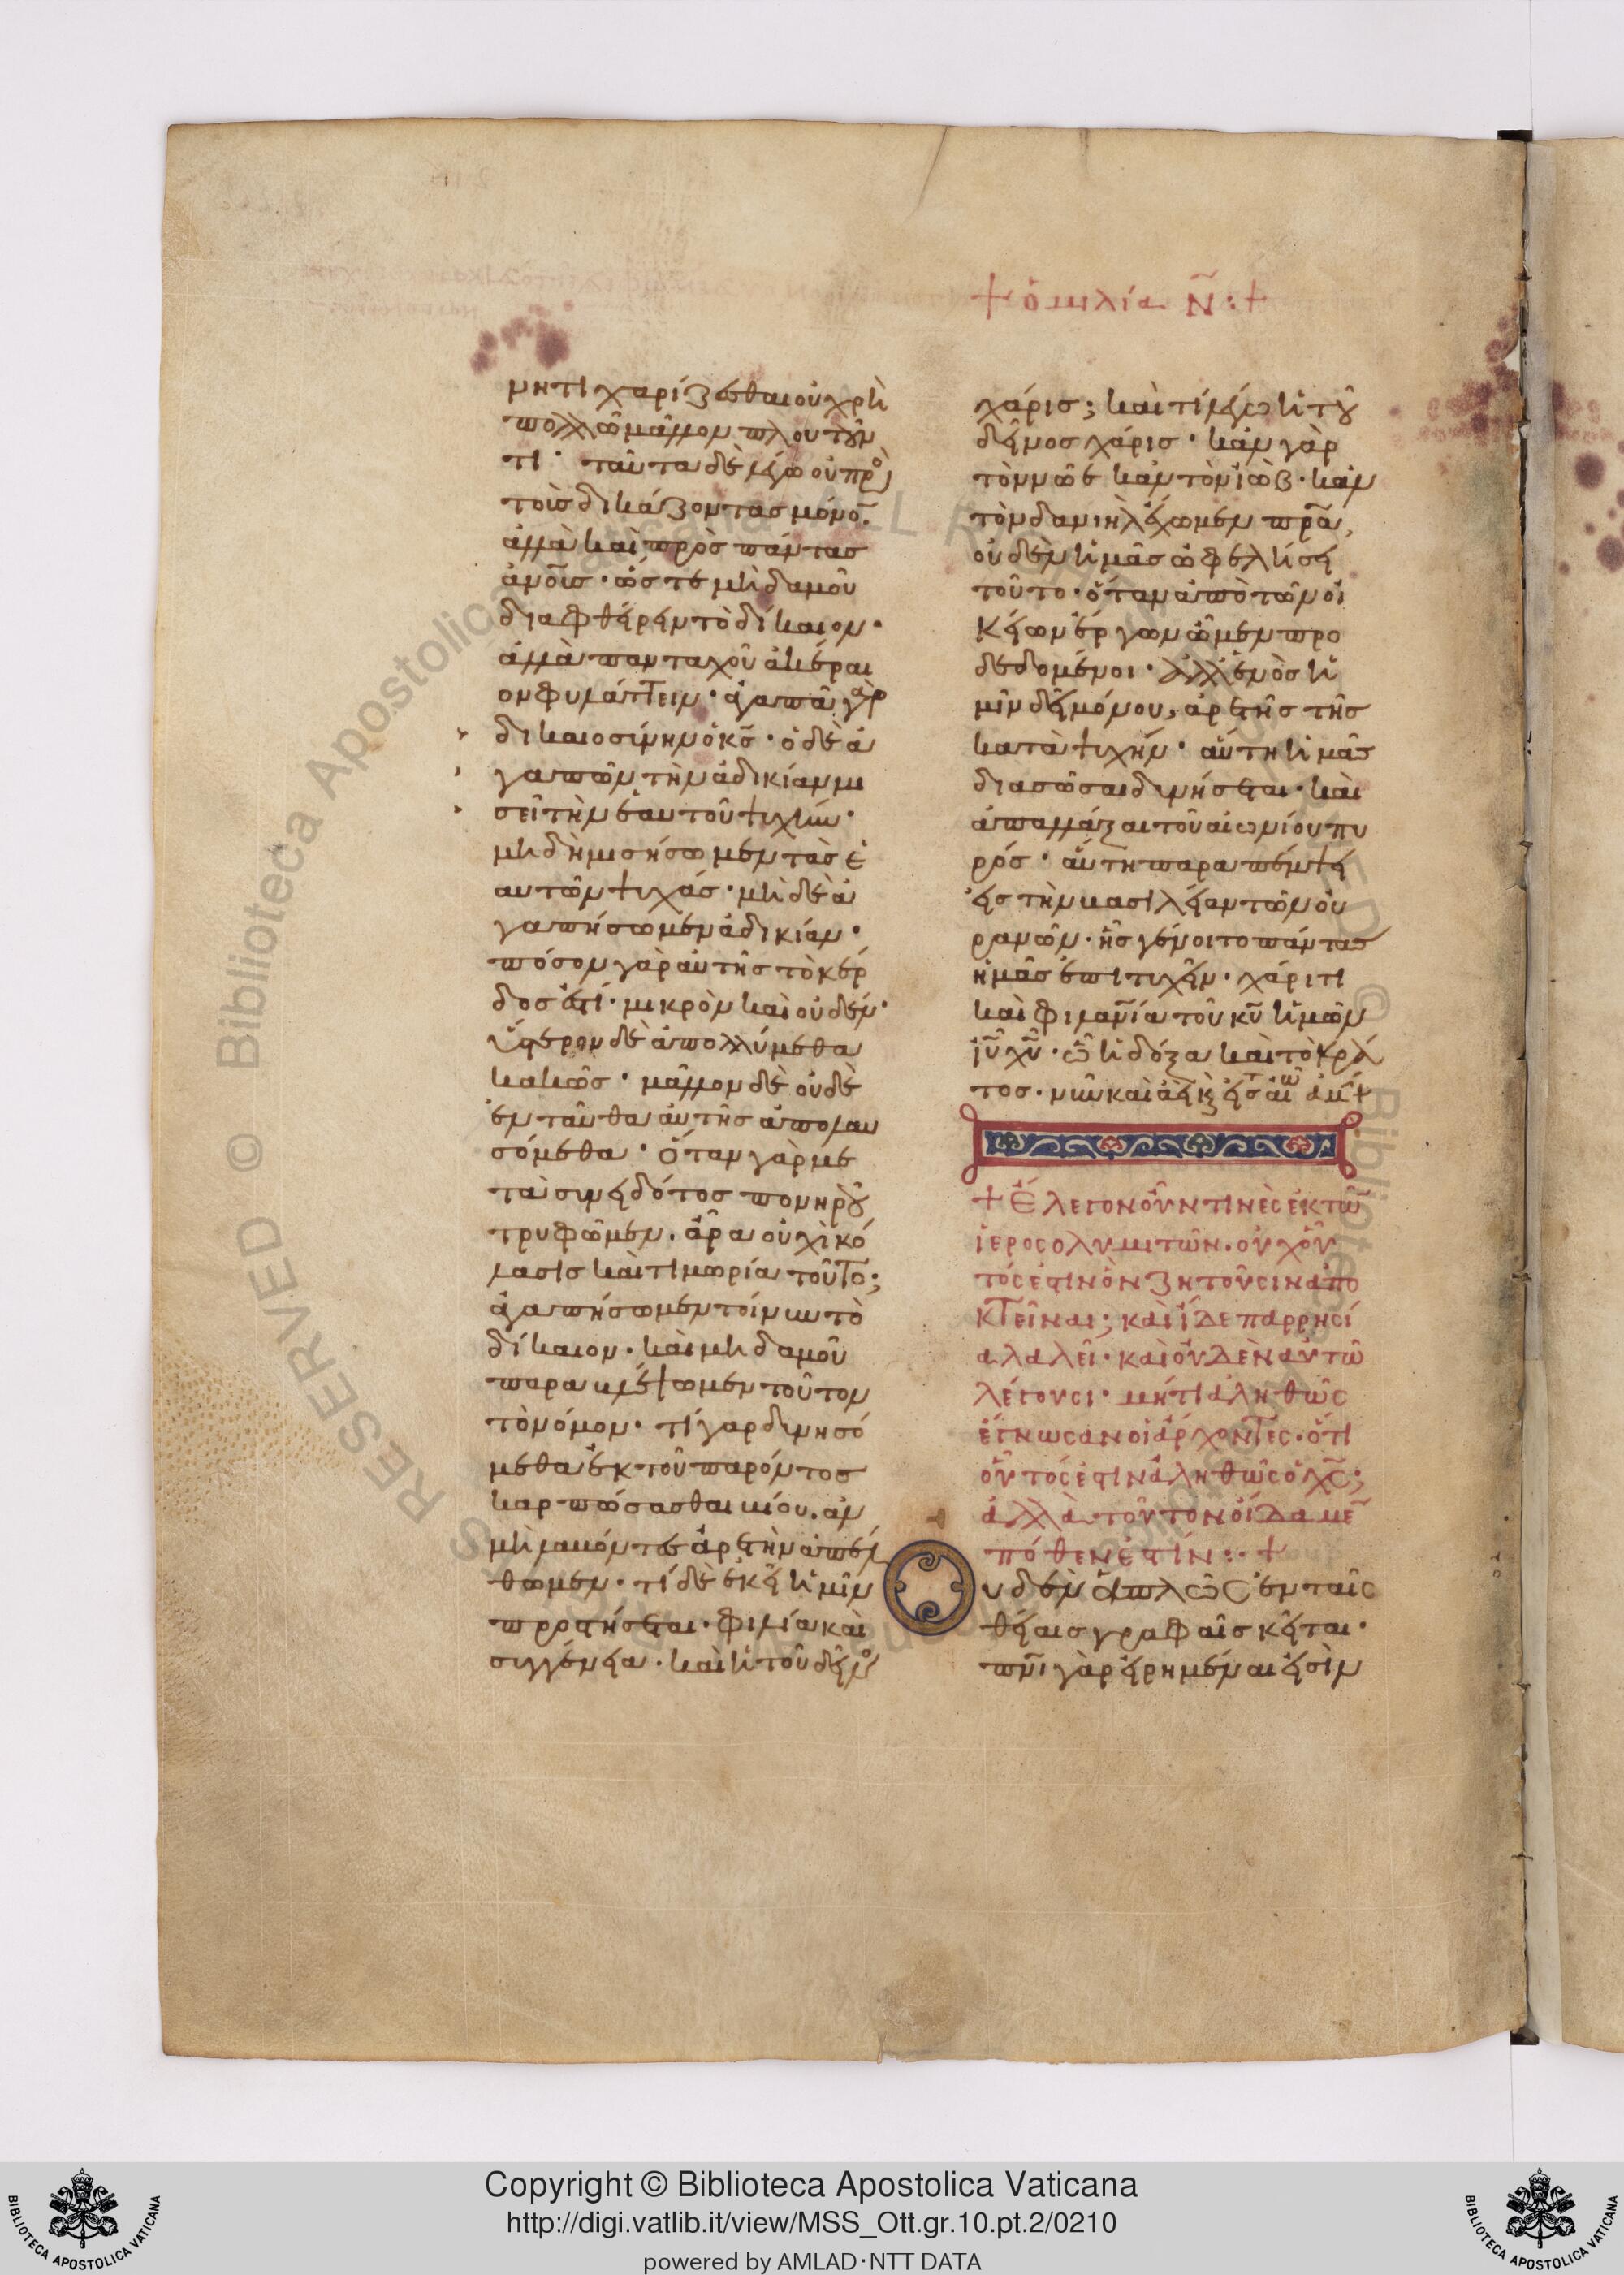 + ὁμιλία Ν̅ :+
μητι χαρίζεσθαι οὐ χρὴ
πολλῶ μᾶλλον πλουτοῦν
τι· ταῦτα δὲ λέγω οὐ πρὸς
τοὺς δικάζοντας μόνο̅.
ἀλλὰ καὶ πρὸς πάντας
ἀνο̅υς· ὥστε μηδαμοῦ
διαφθείρειν τὸ δίκαιον·
ἀλλὰ πανταχοῦ ἀκέραι
ον φυλάττειν· ἀγαπᾶ γὰρ
δικαιοσύνην ὁ κ̅ς· ὁ δὲ ἀ
γαπῶν τὴν ἀδικίαν μι
σεῖ τὴν ἑαυτοῦ ψυχήν·
μὴ δὴ μισήσωμεν τὰς ἑ
αυτῶν ψυχάς· μὴ δὲ ἀ
γαπήσωμεν ἀδικίαν·
πόσον γὰρ αὐτῆς τὸ κέρ
δος ἐστί· μικρὸν καὶ οὐδέν·
ὕστερον δὲ ἀπολλύμεθα
κακῶς· μᾶλλον δὲ οὐδὲ
ἐνταῦθα αὐτῆς ἀπολαυ
σόμεθα· ὅταν γὰρ με
τὰ συνειδότος πονηροῦ
τρυφῶμεν. ἆρα οὐχὶ κό
λασις καὶ τιμωρία τοῦτο;
ἀγαπήσωμεν τοίνυν τὸ
δίκαιον. καὶ μηδαμοῦ
παραβλέψωμεν τοῦτον
τὸν νόμον· τί γαρ δυνησό
μεθα ἐκ τοῦ παρόντος
καρπώσασθαι βίου. ἀν
μὴ λαβόντες ἀρετὴν ἀπέλ
θωμεν· τί δὲ ἐκεῖ ἡμῖν
προστήσεται· φιλία καὶ
συγγένεια· καὶ ἡ τοῦ δεῖνος
χάρις; καὶ τί λέγω ἡ τοῦ
δεῖνος χάρις· κἀν γὰρ
τὸν νῶε κἀν τὸν ἰὼβ· κἀν
τὸν δανιὴλ ἔχωμεν πρ̅α,
οὐδὲν ἡμᾶς ὠφελήσει
τοῦτο· ὅταν ἀπὸ τῶν οἰ
κείων ἔργων ὦμεν προ
δεδομένοι· ἀλλ' ἑνὸς ἡ
μῖν δεῖ μόνου, ἀρετῆς τῆς
κατὰ ψυχήν· αὕτη ἡμᾶς
διασῶσαι δυνήσεται· καὶ
ἀπαλλάξαι τοῦ αἰωνίου πυ
ρός· αὕτη παραπέμψει
εἰς τὴν βασιλείαν τῶν οὐ
ρανῶν· ἧς γένοιτο πάντας
ἡμᾶς ἐπιτυχεῖν· χάριτι
καὶ φιλαν̅ία τοῦ κ̅υ ἡμῶν
ι̅υ χ̅υ· ὧ ἡ δόξα καὶ τὸ κρά
τος. νῦν καὶ ἀεὶ κ̀ εἰς τ αἰῶ ἀμ +
+ Ἔλεγον οὖν τινὲς ἐκ τῶ̅
ἱεροσολυμιτῶν. οὐχ οὗ̃
τός ἐστιν ὃν ζητοῦσιν ἀπο
κτεῖναι; καὶ ἴδε παρρησί
α λαλεῖ· καὶ οὐδὲν αὐτῶ
λέγουσι· μήτι ἀληθῶς
ἔγνωσαν οἱ ἄρχοντες. ὅτι
οὗτός ἐστιν ἀληθῶς ὁ χ̅ς;
ἀλλὰ τοῦτον οἴδαμε̅
πόθεν ἐστίν :· +
Ουδὲν ἁπλῶς ἐν ταῖς
θείαις γραφαῖς κεῖται·
πν̅ι γὰρ εἰρημέναι εἰσὶν
Copyright © Biblioteca Apostolica Vaticana
http://digi.vatlib.it/view/MSS_Ott.gr.10.pt.2/0210
powered by AMLAD·NTT DATA